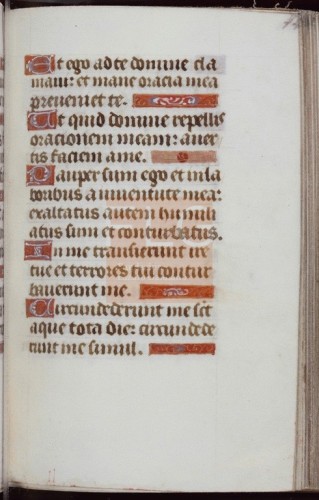 Et ego ad te domine cla
maui: et mane oracia mea
preueniet te.
Ut quid domine repellis
orationem meam: auer
tis faciem a me.
Pauper sum ego et in la
boribus a iuuentute mea:
exaltatus autem humili
atus sum et conturbatus.
In me transierunt ire
tue et terrores tui contur
bauerunt me.
Circundederunt me sic̄t
aqua tota die: circundede
runt me simul.